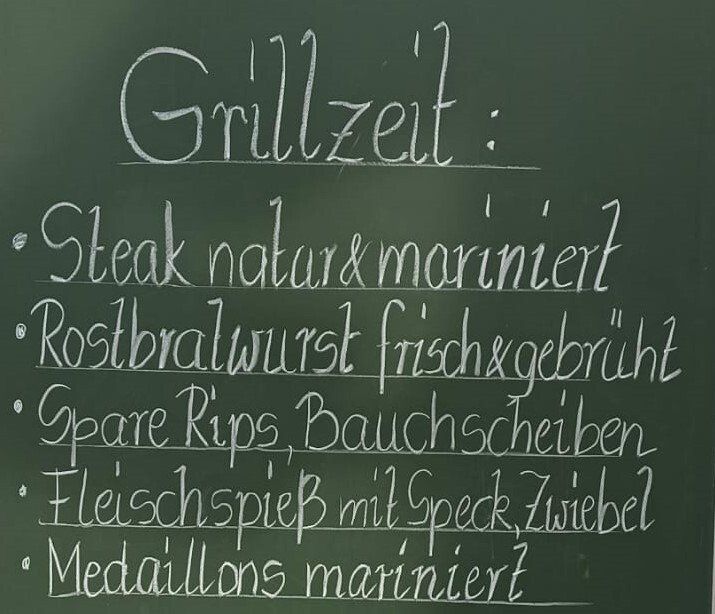 Grillzeit:
• Steak natur & mariniert
• Rostbratwurst frisch & gebrüht
• Spare Rips, Bauchscheiben
• Fleischspieß mit Speck, Zwiebel
• Medaillons mariniert